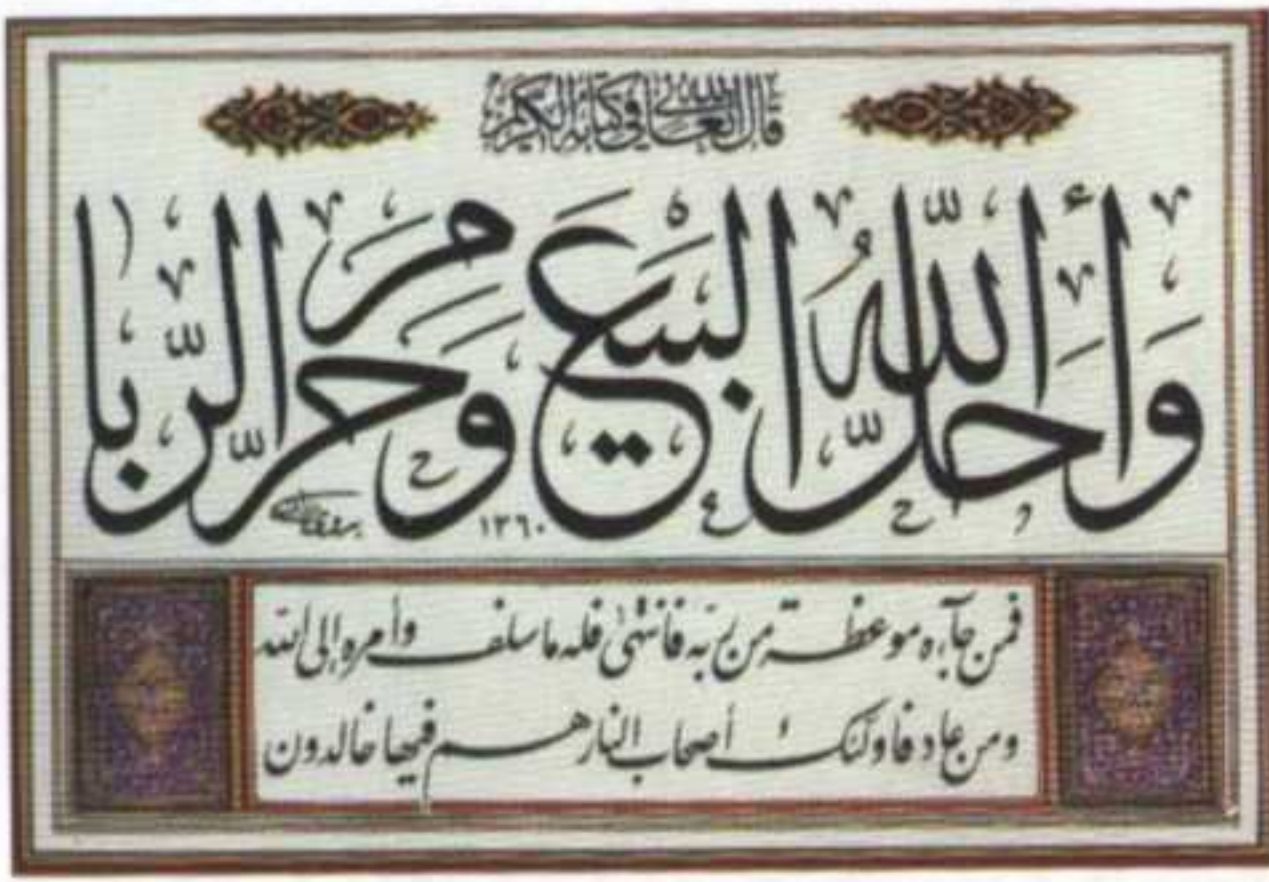 قال الله تعالى في كتابه الكريم
وَأحلّ اللّهُ البيع وحرّم الرّبا
١٣٦٠
فمن جآءه موعظة من ربّه فانتهى فله ما سلف وأمره إلى الله
ومن عاد فأولئك أصحاب النار هم فيها خالدون